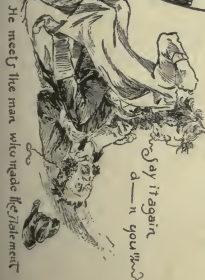 Say it again
d—n you!!!
He meets the man who made the statement